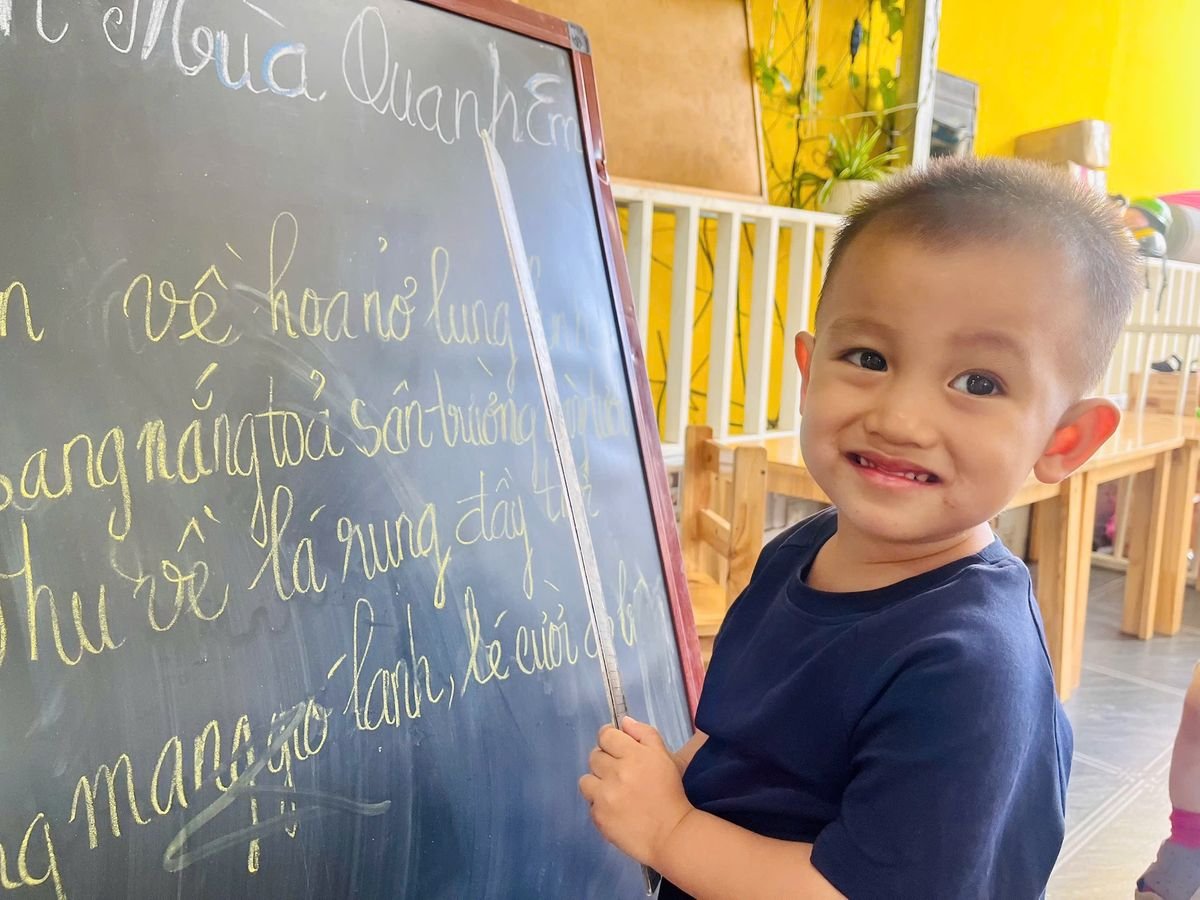 Mùa Quanh Em
về hoa nở lung
sang nắng toả sân trường
Thu về lá rung, đầy
mang gió lạnh, bé cười